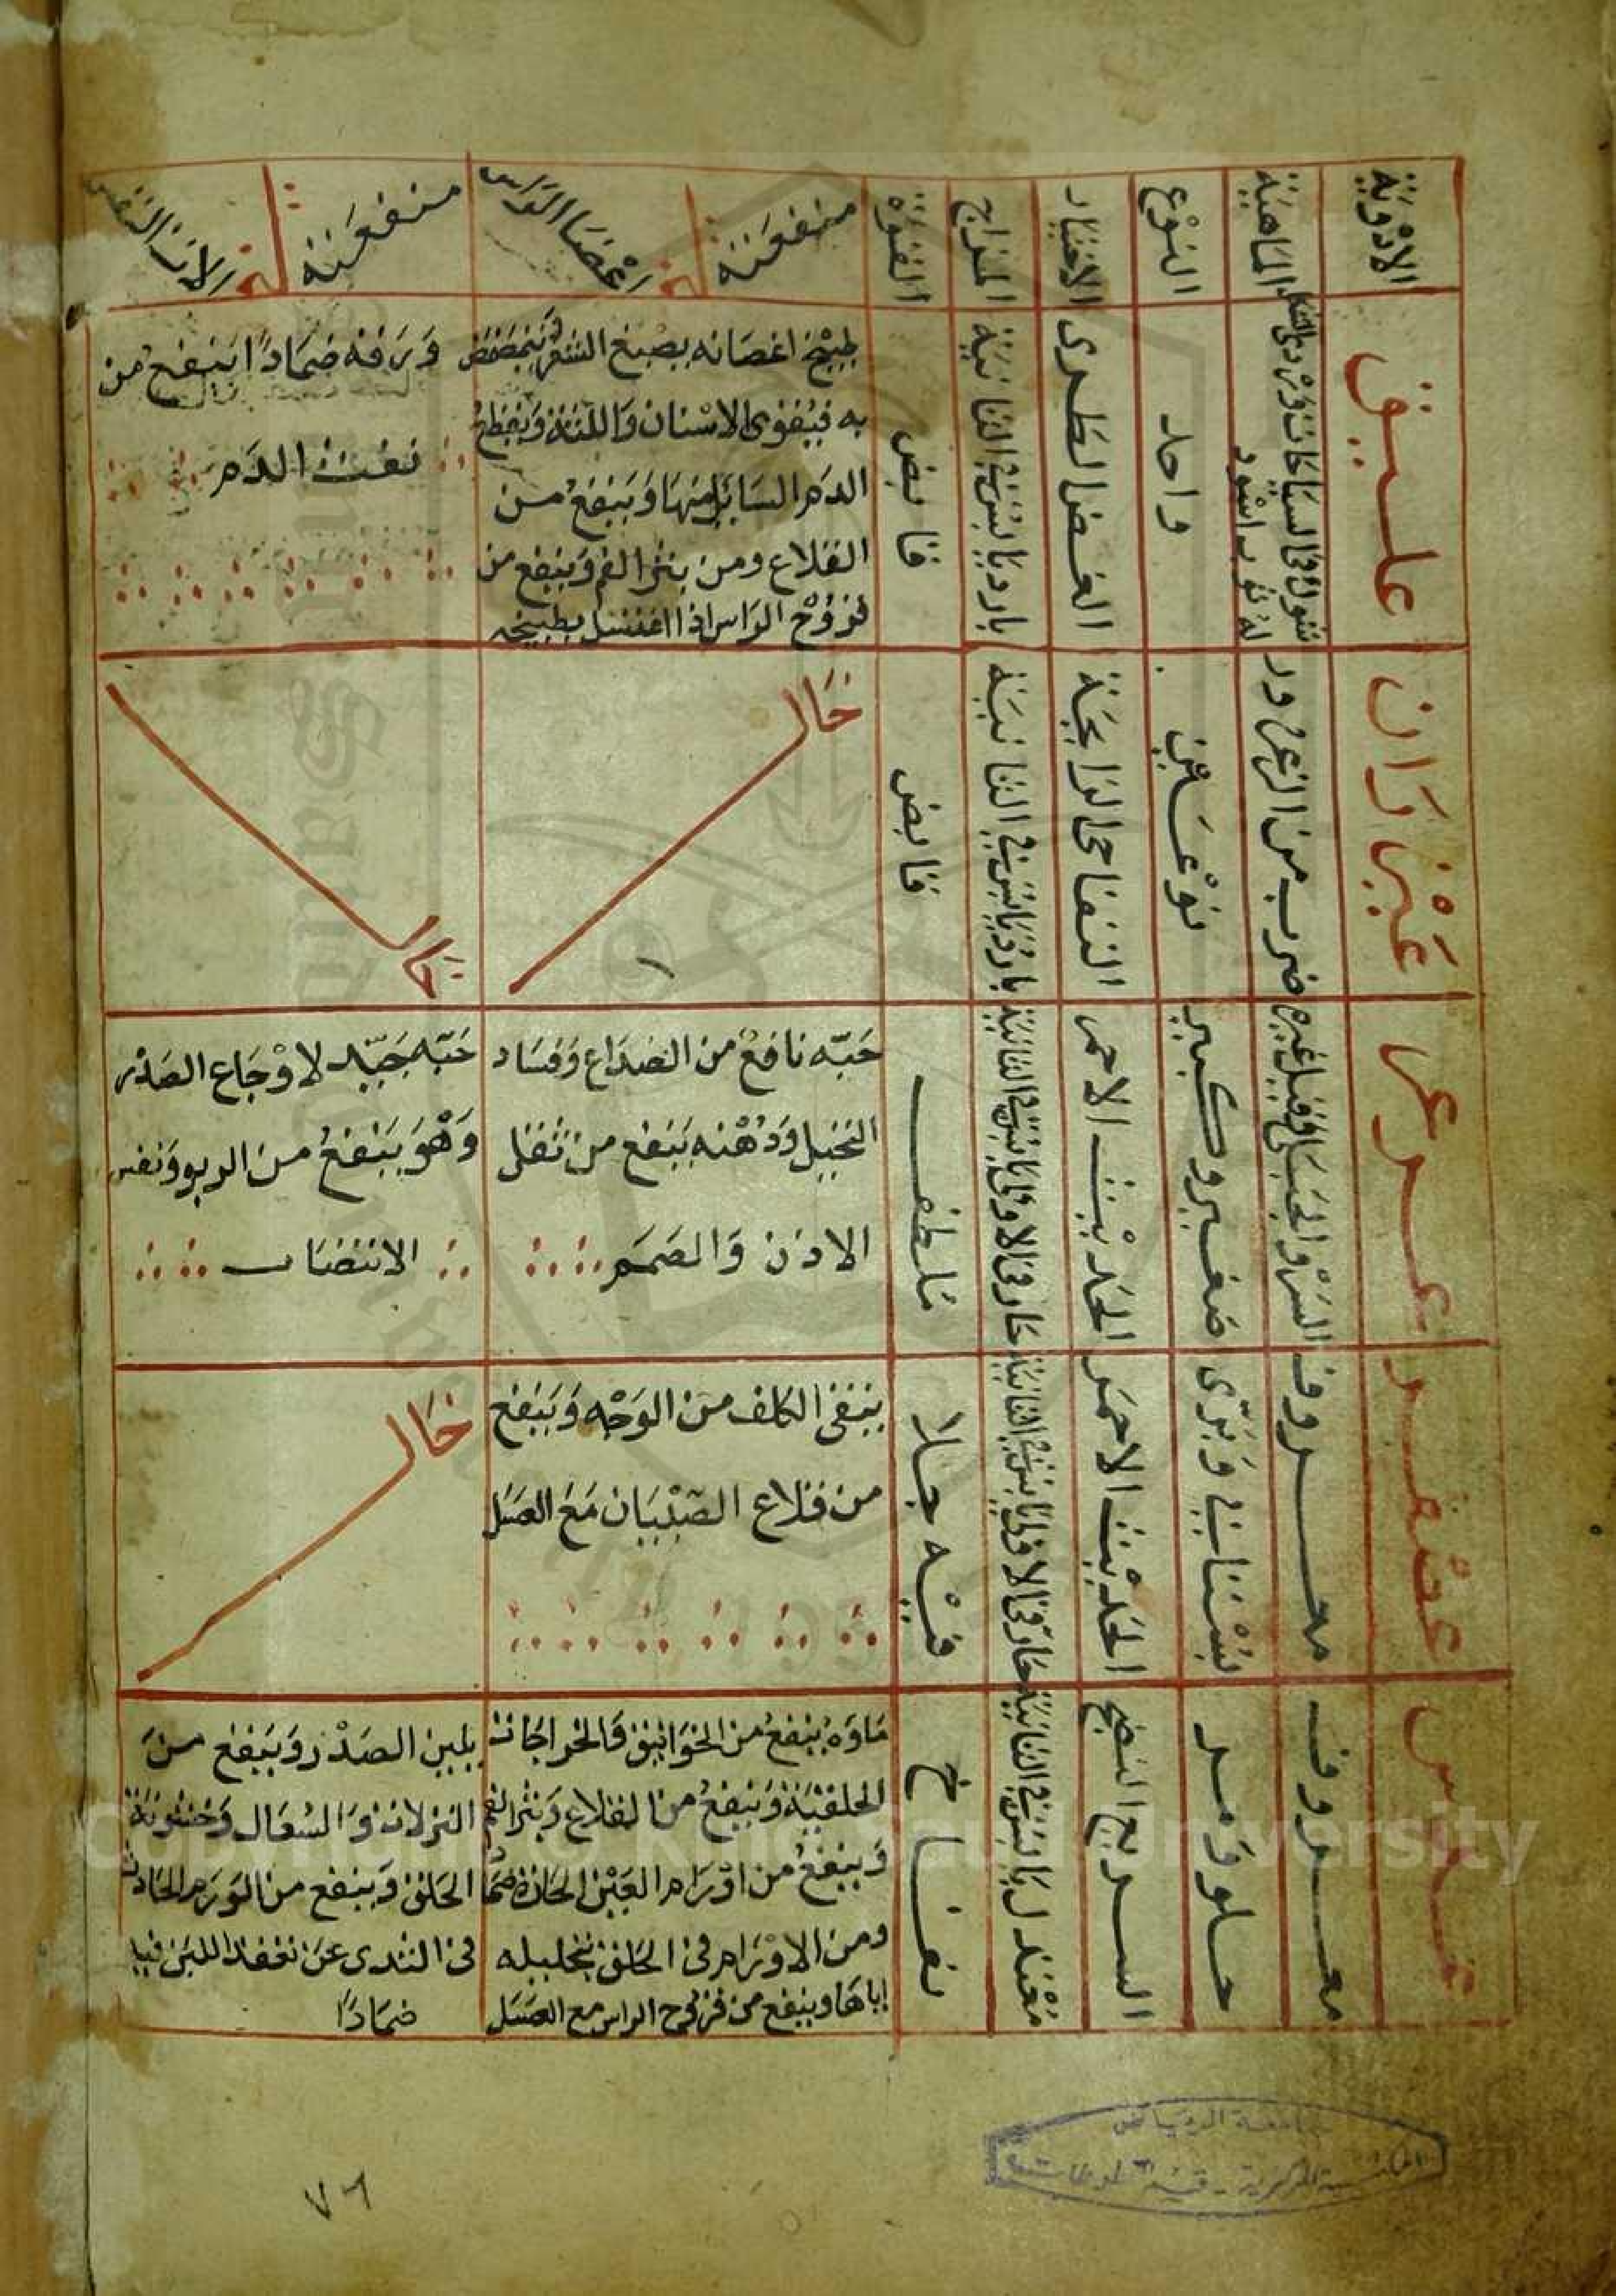 الادوية
الماهية
النوع
الاختيار
المزاج
القوة
منفعته في اعضا الراس
منفعته في الات النفس
عليق
له ثمر اسود
واحد
الغض الطرى
بارد يابس في الثانية
قابض
طبيخ اغصانه يصبغ الشعر ويتمضمض
به فيقوى الاسنان واللثة ويقطع
الدم السايل منها وينفع من
القلاع ومن بثر الفم وينفع من
قروح الراس اذا اغتسل بطبيخه
وورقه ضمادا ينفع من
نفث الدم
ضرب من الزعرور
نوعين
التفاحى الرايحة
بارد يابس في الثانية
قابض
خال
خال
عرعر
صغير وكبير
الحديث الاحمر
حار في الاولى يابس في الثانية
ملطف
حبه نافع من الصداع وفساد
التخيل ودهنه ينفع من ثقل
الاذن والصمم
حبه جيد لاوجاع الصدر
وهو ينفع من الربو ونفس
الانتصاب
عصفر
معروف
بستاني وبرى
الحديث الاحمر
حار في الاولى يابس في الثانية
فيه جلا
ينقى الكلف من الوجه وينفع
من قلاع الصبيان مع العسل
خال
عدس
معروف
حلو ومر
السريع النضج
معتدل يابس في الثانية
نفاخ
ماوه ينفع من الخوانيق والخراجات
الحلقية وينفع من القلاع وبثر الفم
وينفع من اورام العين الحارة
ومن الاورام في الحلق بتحليله
اياها وينفع من قروح الراس مع العسل
يلين الصدر وينفع من
النزلات والسعال وخشونة
الحلق وينفع من الورم الحادث
في الثدى عن تعقد اللبن فيها
ضمادا
جامعة الرياض
المكتبة المركزية - قسم المخطوطات
٧٦
Copyright © King Saud University